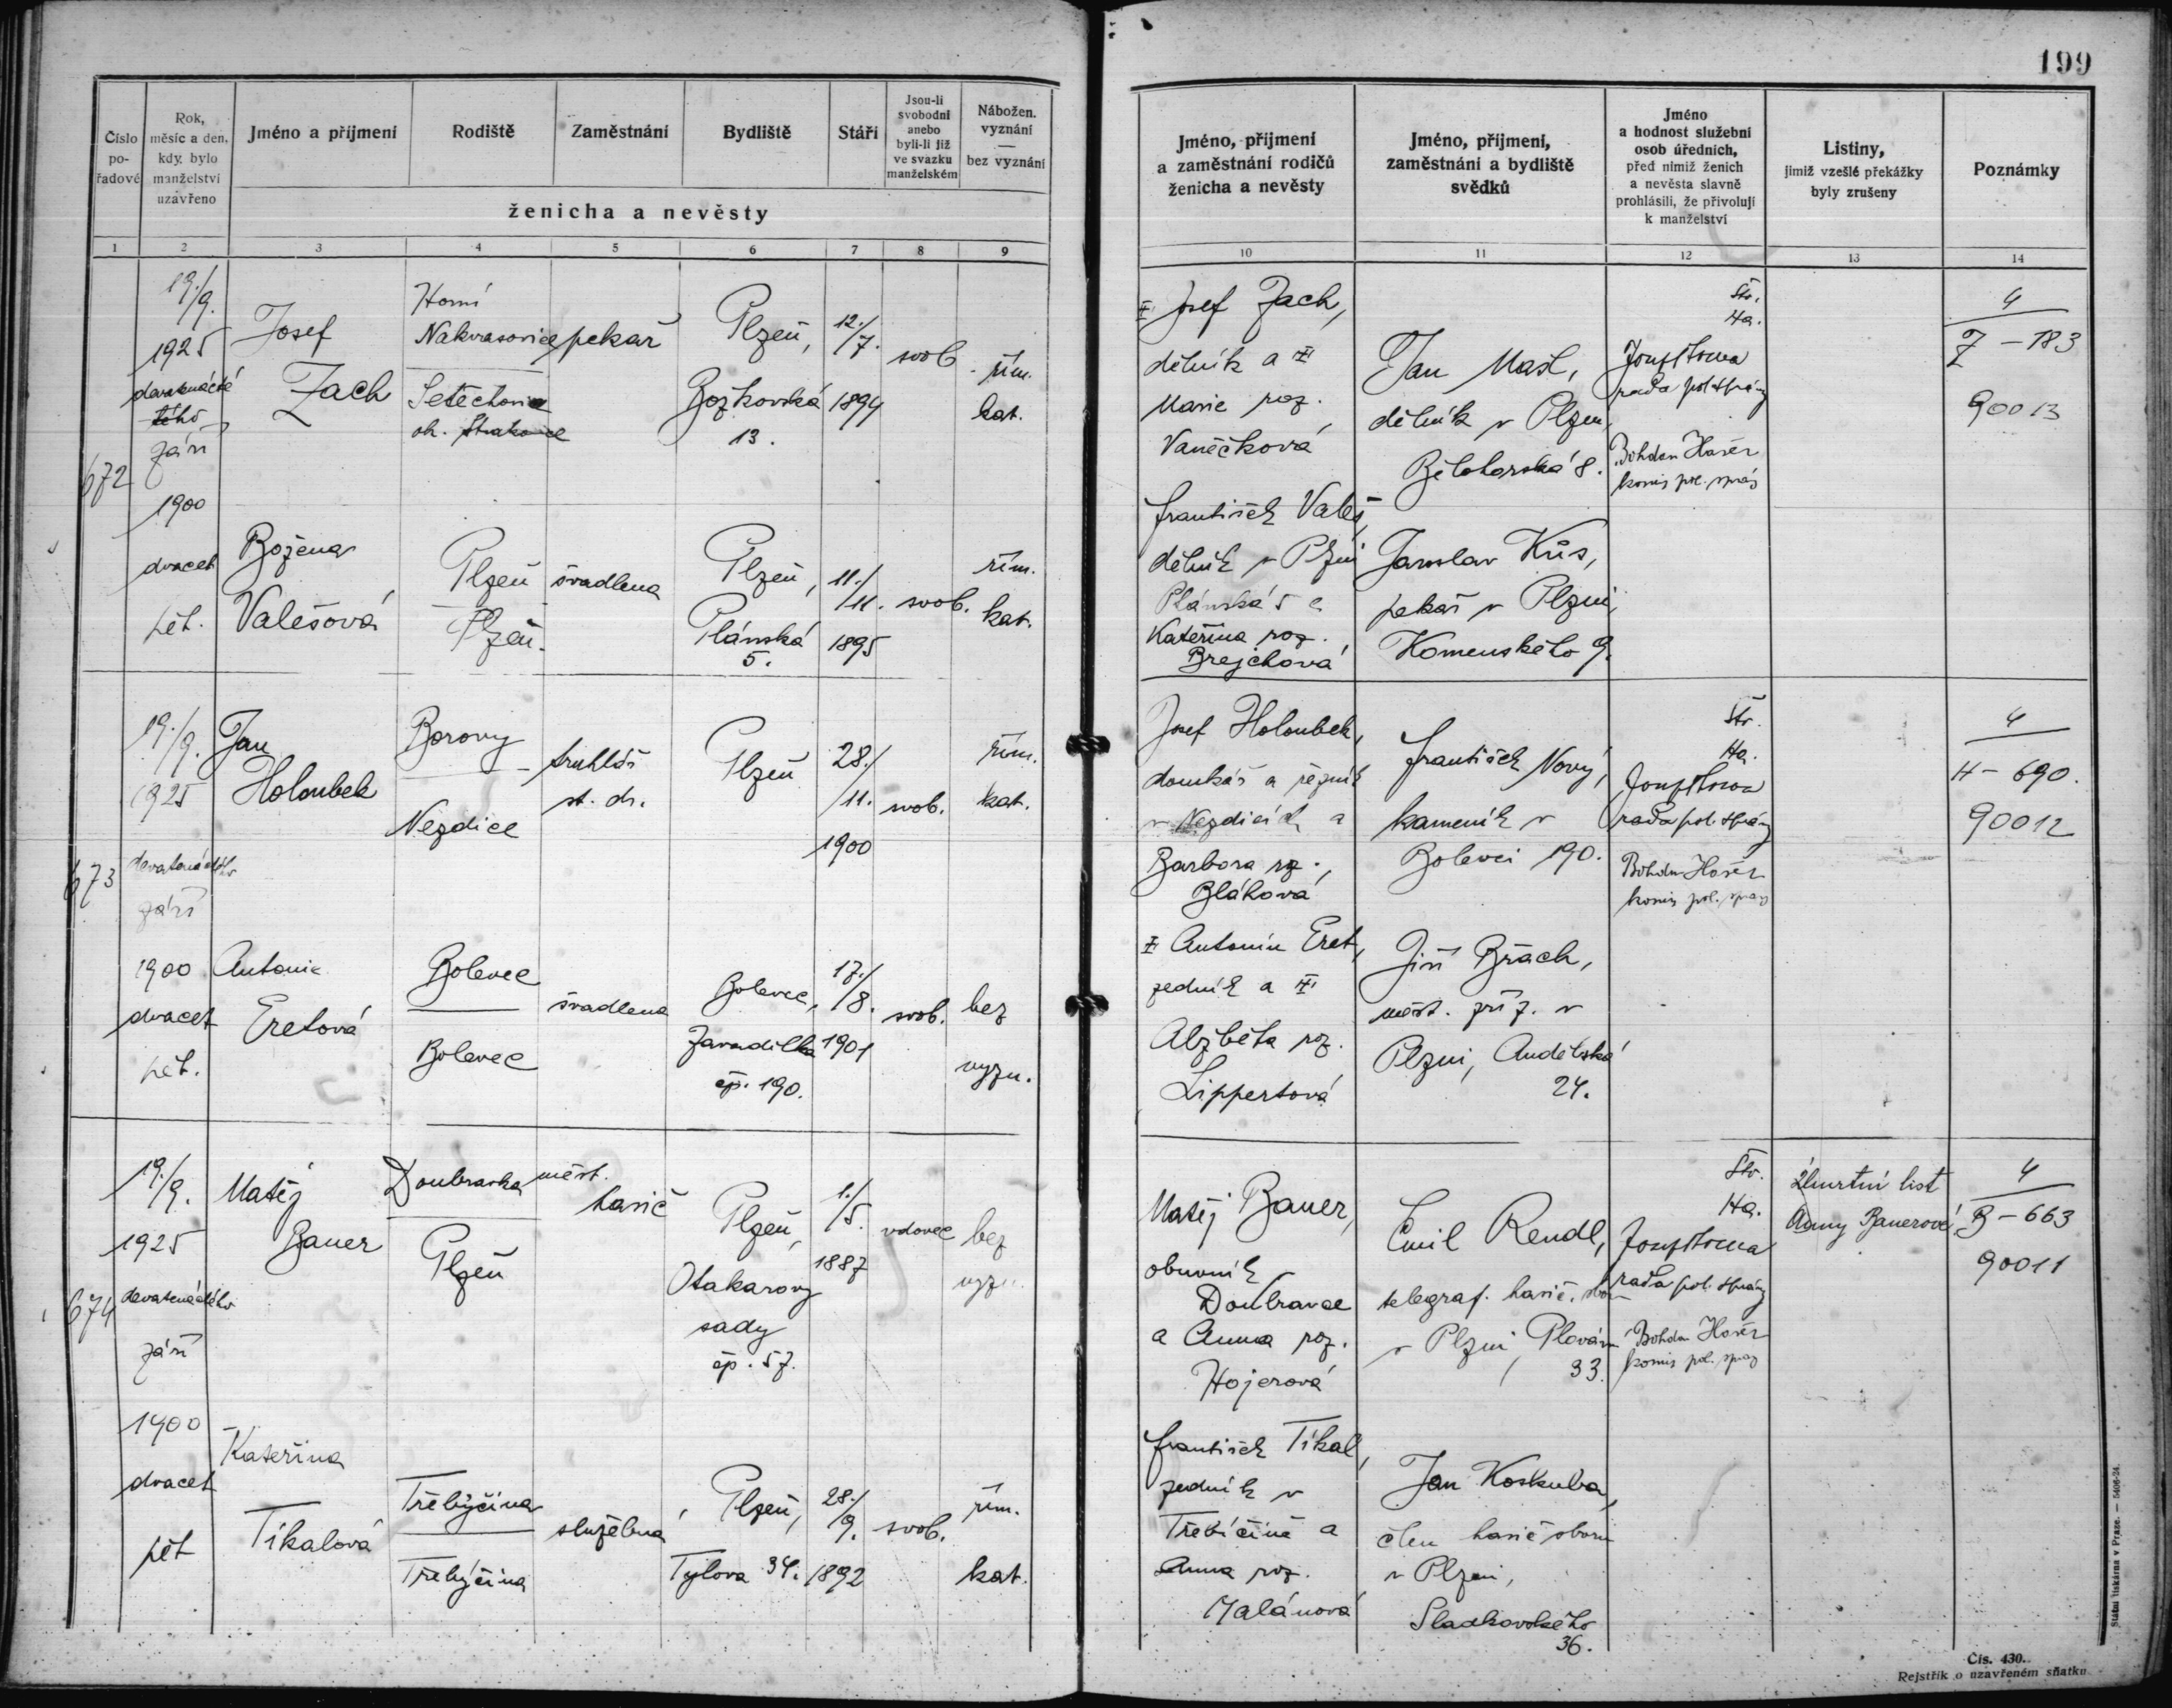 199
Číslo po-řadové
Rok, měsíc a den, kdy bylo manželství uzavřeno
Jméno a příjmení
Rodiště
Zaměstnání
Bydliště
Stáří
Jsou-li svobodni anebo byli-li již ve svazku manželském
Nábožen. vyznání — bez vyznání
ženicha a nevěsty
Jméno, příjmení a zaměstnání rodičů ženicha a nevěsty
Jméno, příjmení, zaměstnání a bydliště svědků
Jméno a hodnost služební osob úředních, před nimiž ženich a nevěsta slavně prohlásili, že přivolují k manželství
Listiny, jimiž vzešlé překážky byly zrušeny
Poznámky
1 2 3 4 5 6 7 8 9 10 11 12 13 14
672
19./9.
1925
září
1900
dvacet
pět.
Josef
Zach
Horní
Nakvasovice
pekař
Plzeň,
Božkovská
13.
12./7.
1894
svob.
řím.
kat.
Božena
Valešová
Plzeň
Plzeň.
švadlena
Plzeň,
Plánská
5.
11./11.
1895
svob.
řím.
kat.
Josef Zach,
dělník a
Marie roz.
Vaněčková
František Valeš,
dělník v Plzni
Plánská 5 a
Kateřina roz.
Brejchová
Jan Mašl,
dělník v Plzni,
Bělohorská 8.
Jaroslav Kůs,
pekař v Plzni,
Komenského 9.
Štr.
Ha.
rada pol. správy
Bohdan Hašer
komis pol. správ
4
Z - 183
90013
673
19./9.
1925
devatenáctého
září
1900
dvacet
pět.
Jan
Holoubek
Borovy
Nezdice
truhlář
st. dr.
Plzeň
28./11.
1900
svob.
řím.
kat.
Antonie
Eretová
Bolevec
Bolevec
švadlena
Bolevec,
Zavadilka
čp. 190.
17./8.
1901
svob.
bez
vyzn.
Josef Holoubek,
domkář a řezník
v Nezdicích a
Barbora roz.,
Bláhová
Antonín Eret,
zedník a
Alžběta roz.
Lippertová
František Nový,
kameník v
Bolevci 190.
Jiří Brach,
měst. zříz. v
Plzni, Andělská
24.
Štr.
Ha.
rada pol. správy
Bohdan Hašer
komis pol. správ
4
H - 690.
90012
674
19./9.
1925
devatenáctého
září
1900
dvacet
pět
Matěj
Bauer
Doubravka
Plzeň
měst.
hasič
Plzeň,
Otakarovy
sady
čp. 57.
1./5.
1887
vdovec
bez
vyzn.
Kateřina
Tikalová
Třebýčina
Třebýčina
služebná
Plzeň,
Tylova 34.
28./9.
1892
svob.
řím.
kat.
Matěj Bauer,
obuvník v
Doubravce
a Anna roz.
Hojerová
František Tikal,
zedník v
Třebíčině a
Anna roz.
Malánová
Emil Rendl,
telegraf. hasič. sbor
v Plzni,
33.
Jan Koskuba,
člen hasič sboru
v Plzni,
Sladkovského
36.
Štr.
Ha.
rada pol. správy
Bohdan Hašer
komis pol. správ
Úmrtní list
Anny Bauerové
4
B - 663
90011
Státní tiskárna v Praze. — 5406-24.
Čís. 430.
Rejstřík o uzavřeném sňatku